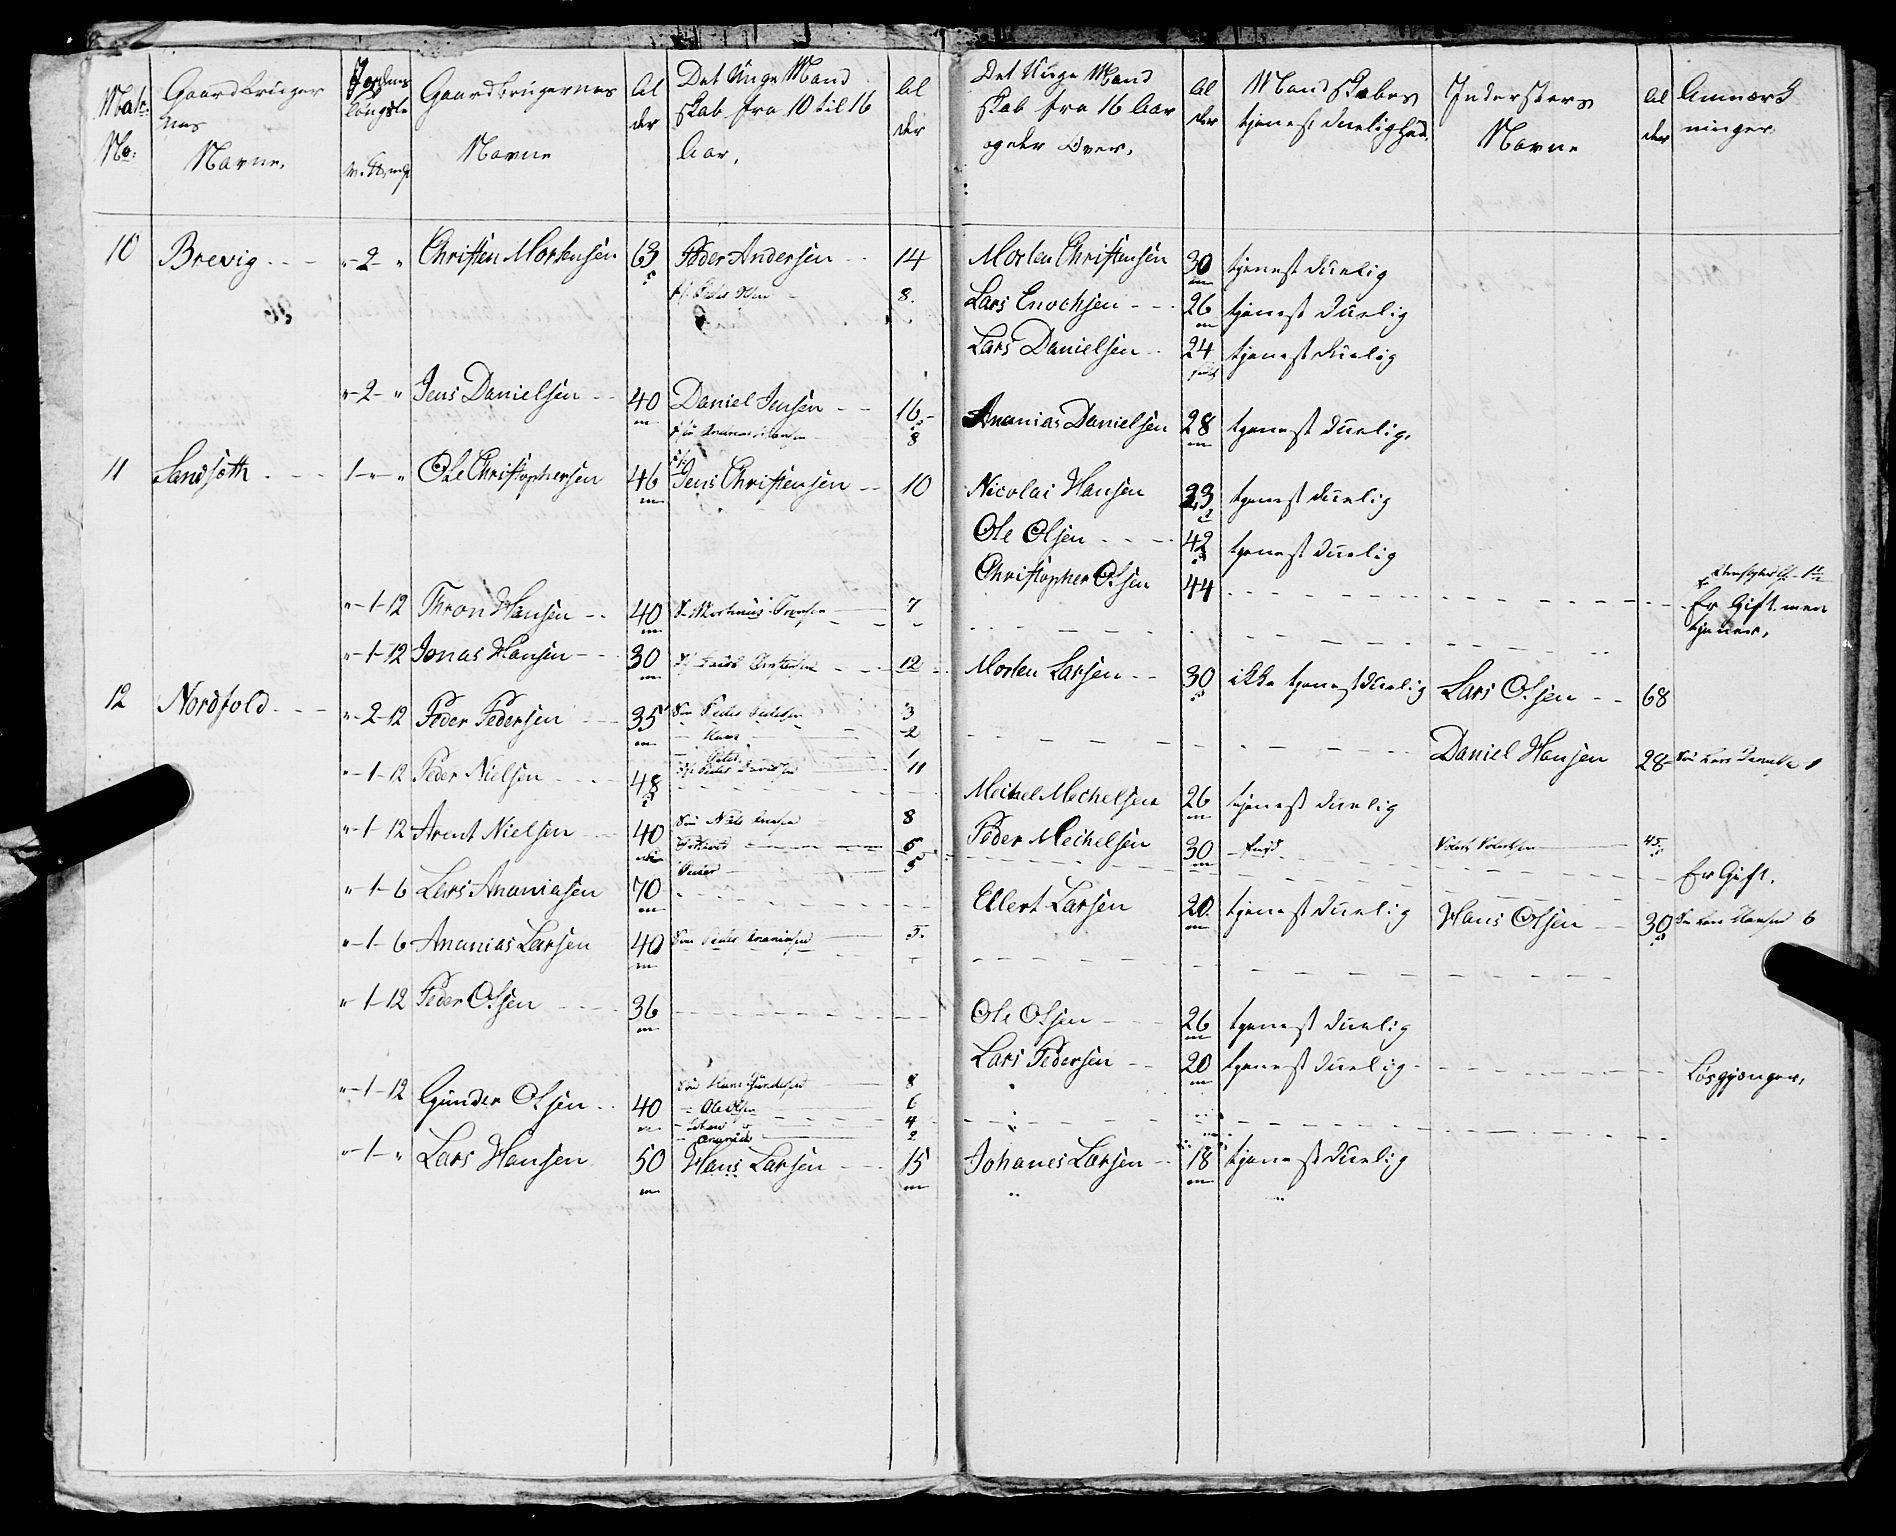 Matr: No:
Gaardbruger nes Navne.
Jordens
Gaardbrugernes Navne
Al der
Det Unge Mand skab fra 10 til 16 Aar.
Al der
Det Unge Mand skab fra 16 Aar og der Over.
Al der
Mandskabes tjenestduelighed.
Indersters Navne
Al der
Anmærk ninger.
10 Brevig "-2-" Christen Mortensen 63 Peder Andersen 14 Morten Christensen 30 tjenestduelig
8. Lars Enochsen 26 tjenestduelig
Lars Danielsen 24 tjenestduelig
"-2-" Jens Danielsen 40 Daniel Jensen 16 Ananias Danielsen 28 tjenestduelig.
8
11 Sandsøth 1-"-" Ole Christophersen 46 Jens Christensen 10 Nicolai Hansen 23 tjenestduelig
Ole Olsen 42 tjenestduelig
Christopher Olsen 44 Er Gift men tjener.
"-1-12 Thron Hansen 40 7
"-1-12 Jonas Hansen 30 12 Morten Larsen 30 ikke tjenestduelig Lars Olsen 68
12 Nordfold "-2-12 Peder Pedersen 35 Søn Peder Pedersen 3
Hans 2
Daniel Hansen 28
"-1-12 Peder Nielsen 48 11 Mechel Mechelsen 26 tjenestduelig
"-1-12 Arent Nielsen 40 8 Peder Mechelsen 30 45
6
5 Er Gift.
"-1-6 Lars Ananiasen 70 Ellert Larsen 20 tjenestduelig Hans Olsen 30 Søn Lars Hansen 6
"-1-6 Ananias Larsen 40 Søn Peder Ananiasen 5
"-1-12 Peder Olsen 36 Ole Olsen 26 tjenestduelig
Lars Pedersen 20 tjenestduelig Løsgjænger.
"-1-12 Gunder Olsen 40 Søn Hans Gundersen 8
6
Johan 4
Ananias 2
"-1-" Lars Hansen 50 Hans Larsen 15 Johanes Larsen 18 tjenestduelig